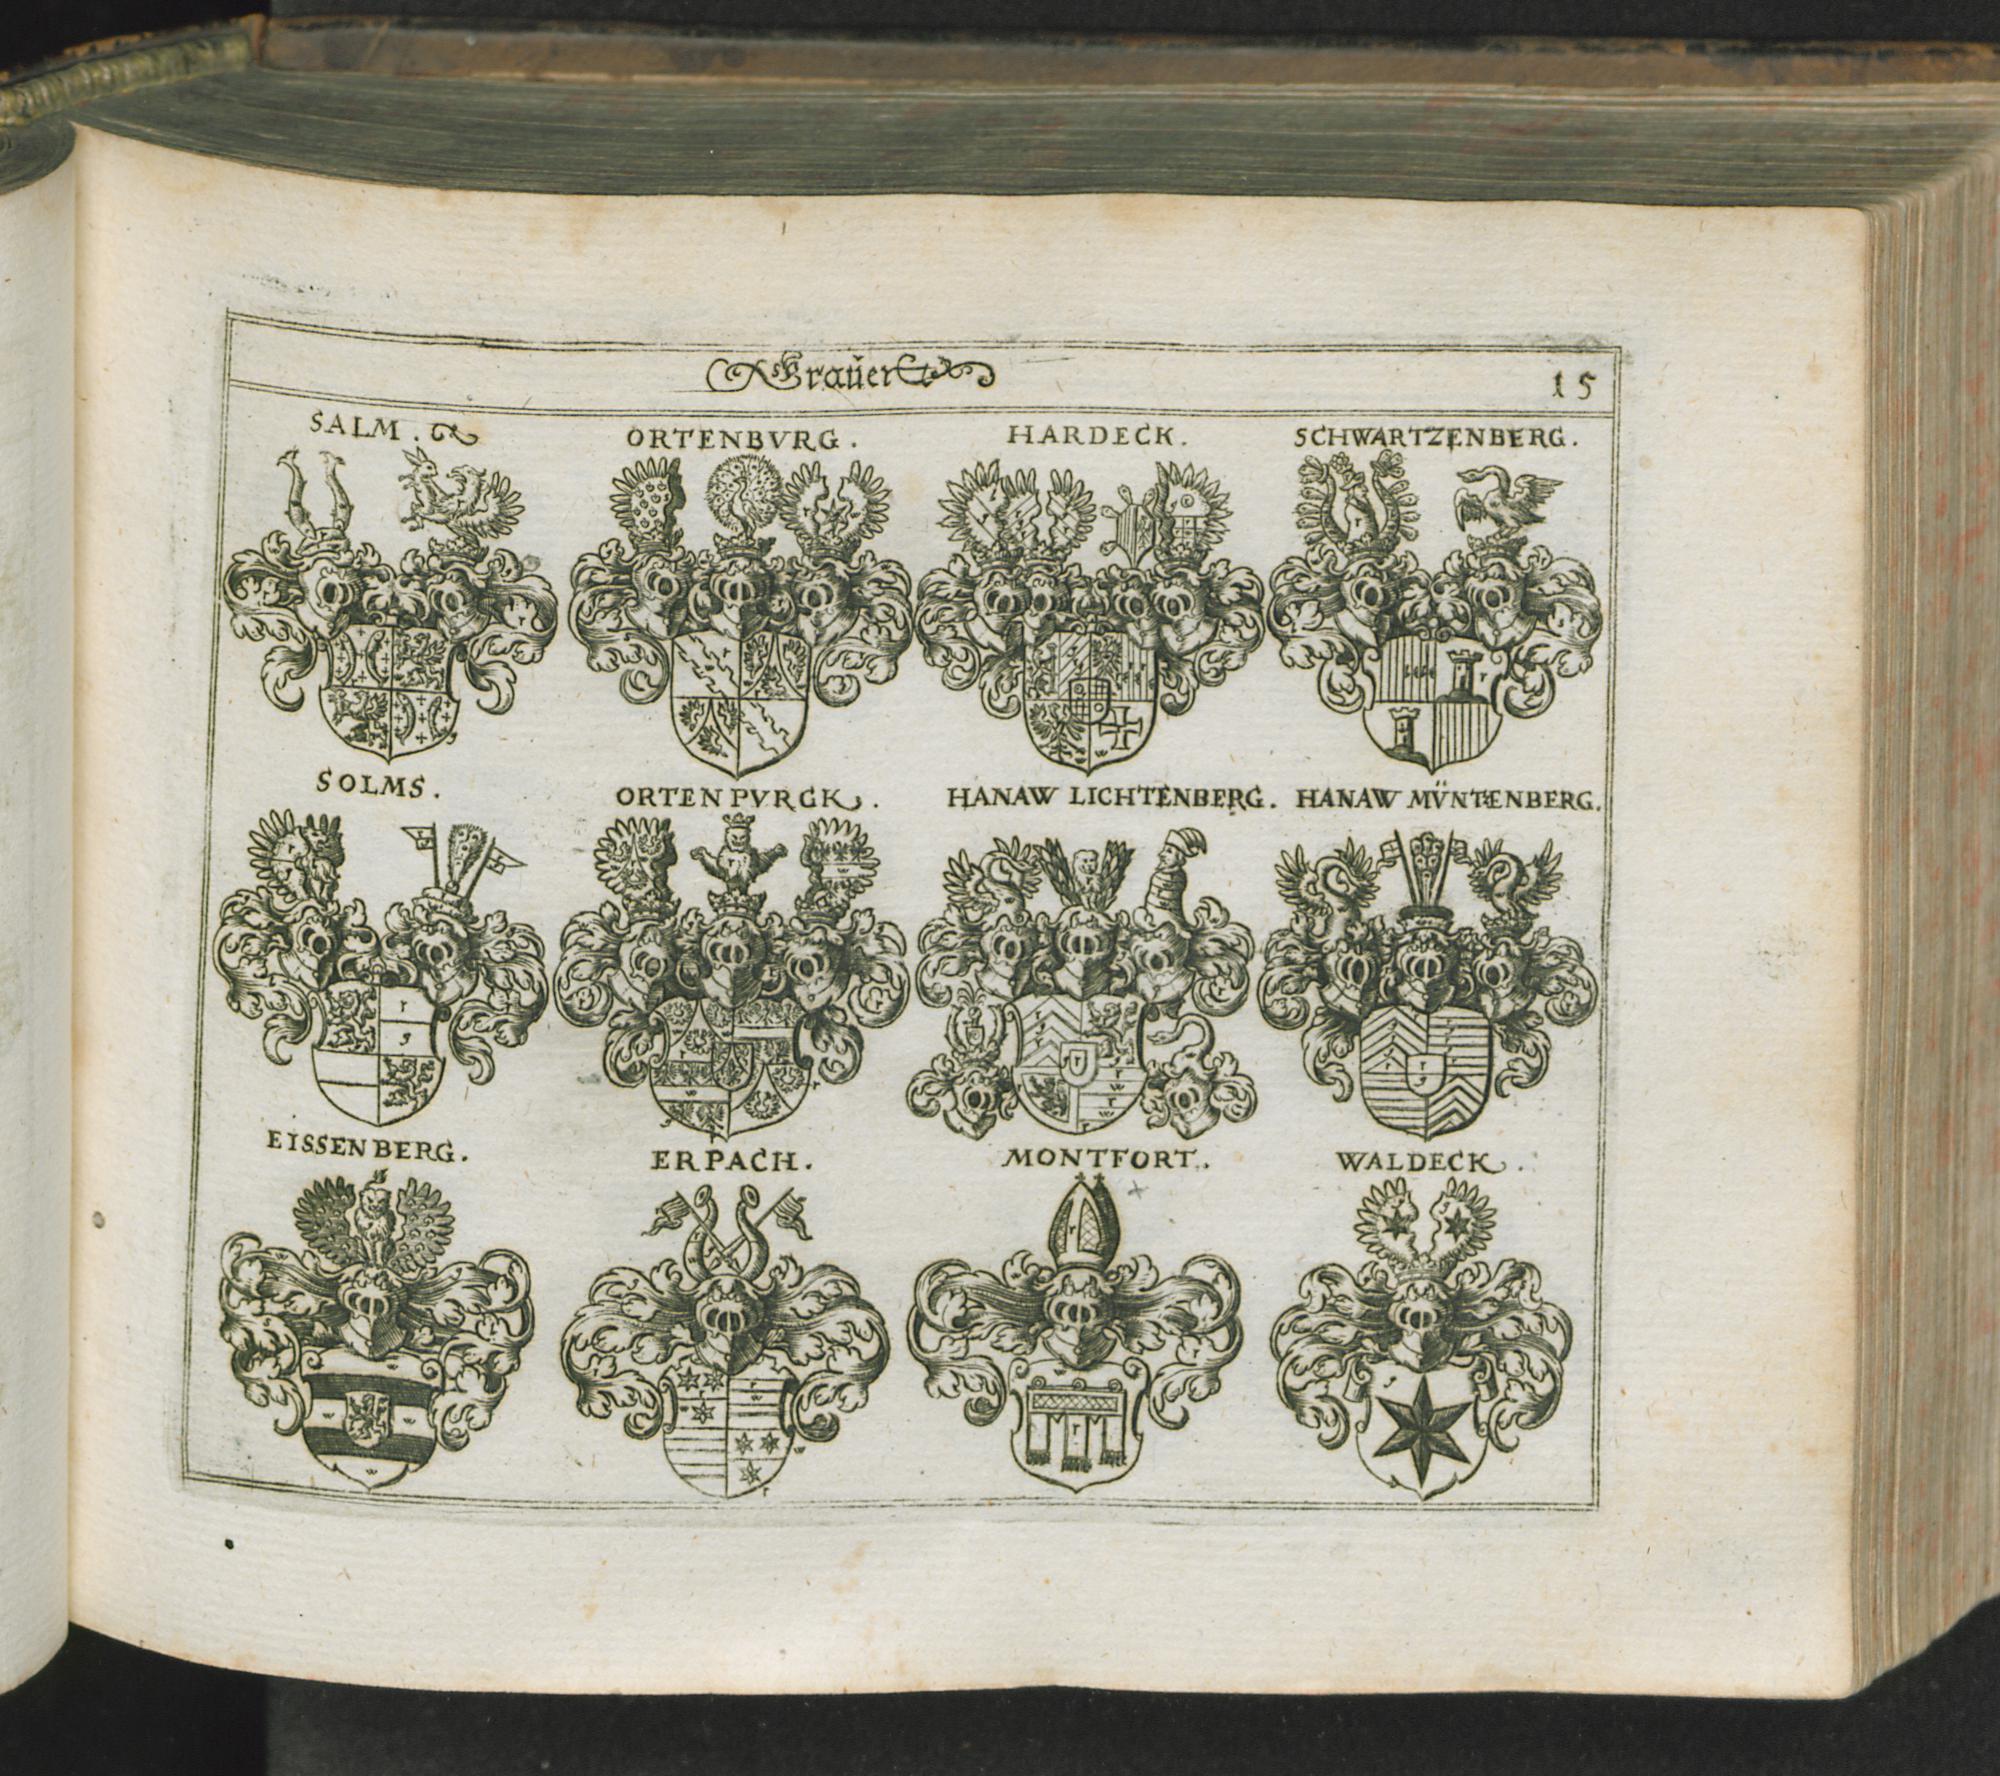 Graven 15
SALM. ORTENBVRG. HARDECK. SCHWARTZENBERG.
SOLMS. ORTENPVRGK. HANAW LICHTENBERG. HANAW MÜNTZENBERG.
EISSENBERG. ERPACH. MONTFORT. WALDECK.